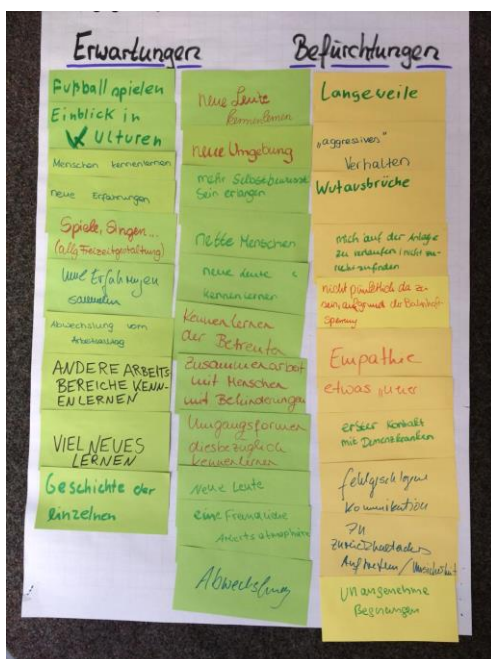 Erwartungen
Befürchtungen
Fußball spielen
Einblick in
Kulturen
Menschen kennenlernen
neue Erfahrungen
Spiele, Singen...
(allg Freizeitgestaltung)
neue Erfahrungen
sammeln
Abwechslung vom
Arbeitsalltag
ANDERE ARBEITS
BEREICHE KENN-
ENLERNEN
VIEL NEUES
LERNEN
Geschichte der
einzelnen
neue Leute
kennenlernen
neue Umgebung
mehr Selbstbewusst
sein erlangen
nette Menschen
neue Leute
kennenlernen
Kennenlernen
der Betreuten
Zusammenarbeit
mit Menschen
und Behinderungen
Umgangsformen
diesbezüglich
kennenlernen
Neue Leute
eine
Arbeitsatmosphäre
Abwechslung
Langeweile
"aggressives"
Verhalten
Wutausbrüche
mich auf der Anlage
zu verlaufen & nicht
nicht pünktlich da zu
sein, aufgrund der Bahnhofs
Sperrung
Empathie
etwas
erster Kontakt
mit Demenzkranken
fehlgeschlagene
Kommunikation
zu
zurückhaltendes
Auftreten / Unsicherheit
Unangenehme
Begegnungen